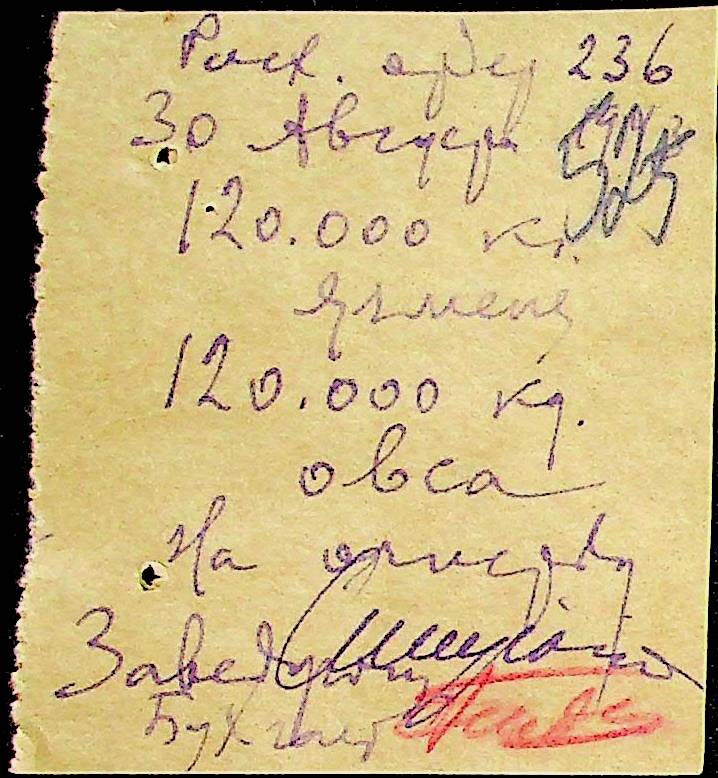 Расх. орд 236
30 Августа
120.000 кг.
ячменя
120.000 кг.
овса
На
Заведующий
Бухгалт